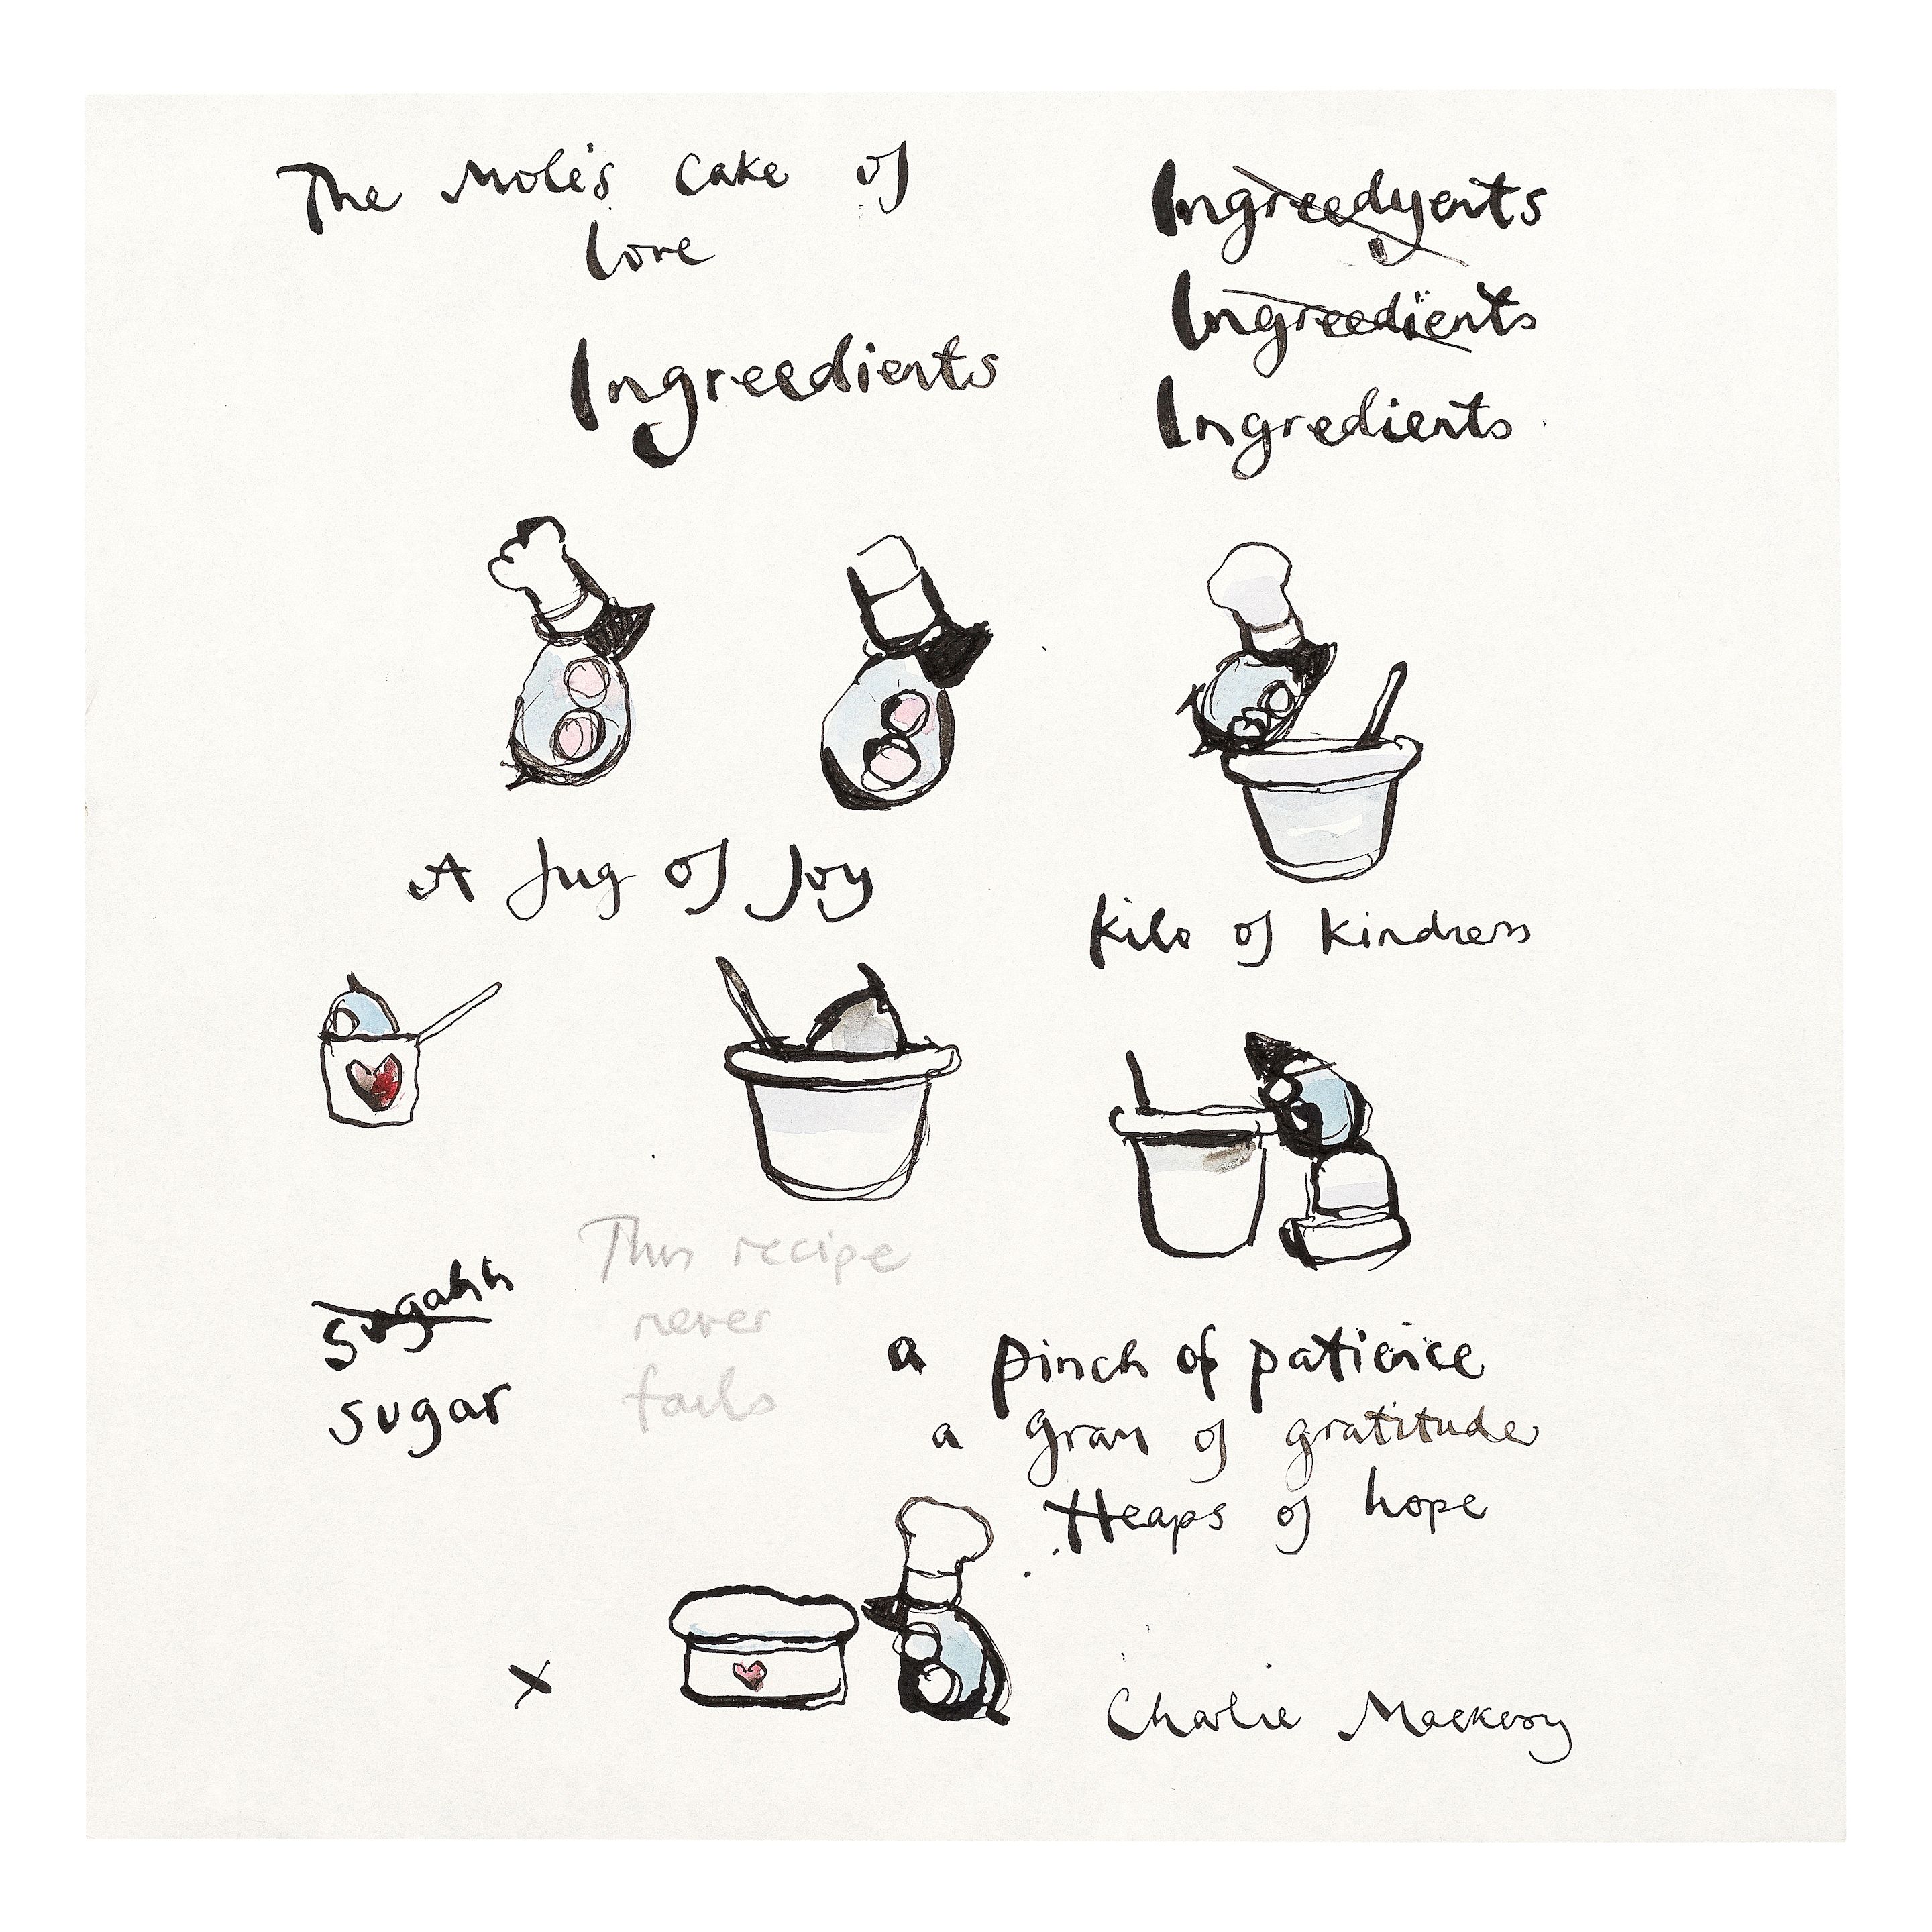 The Mole's Cake of
love
Ingreedients
Ingreedyents
Ingreedients
Ingredients
A Jug of Joy
Kilo of kindness
Sugahh
sugar
This recipe
never
fails
a pinch of patience
a gram of gratitude
Heaps of hope
x
Charlie Mackesy